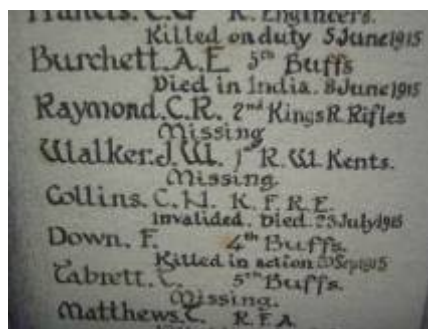 Francis. C.G R. Engineers.
Killed on duty 5 June 1915
Burchett. A.E 5th Buffs
Died in India. 8 June 1915
Raymond. C.R. 2nd Kings R. Rifles
Missing
Walker. J.W. 1st R. W. Kents.
Missing.
Collins. C.H. K. F. R. E.
Invalided. Died. 23 July 1915
Down. F. 4th Buffs.
Killed in action Sep 1915
Tabrett. C. 5th Buffs.
Missing.
Matthews. C. R.F.A.